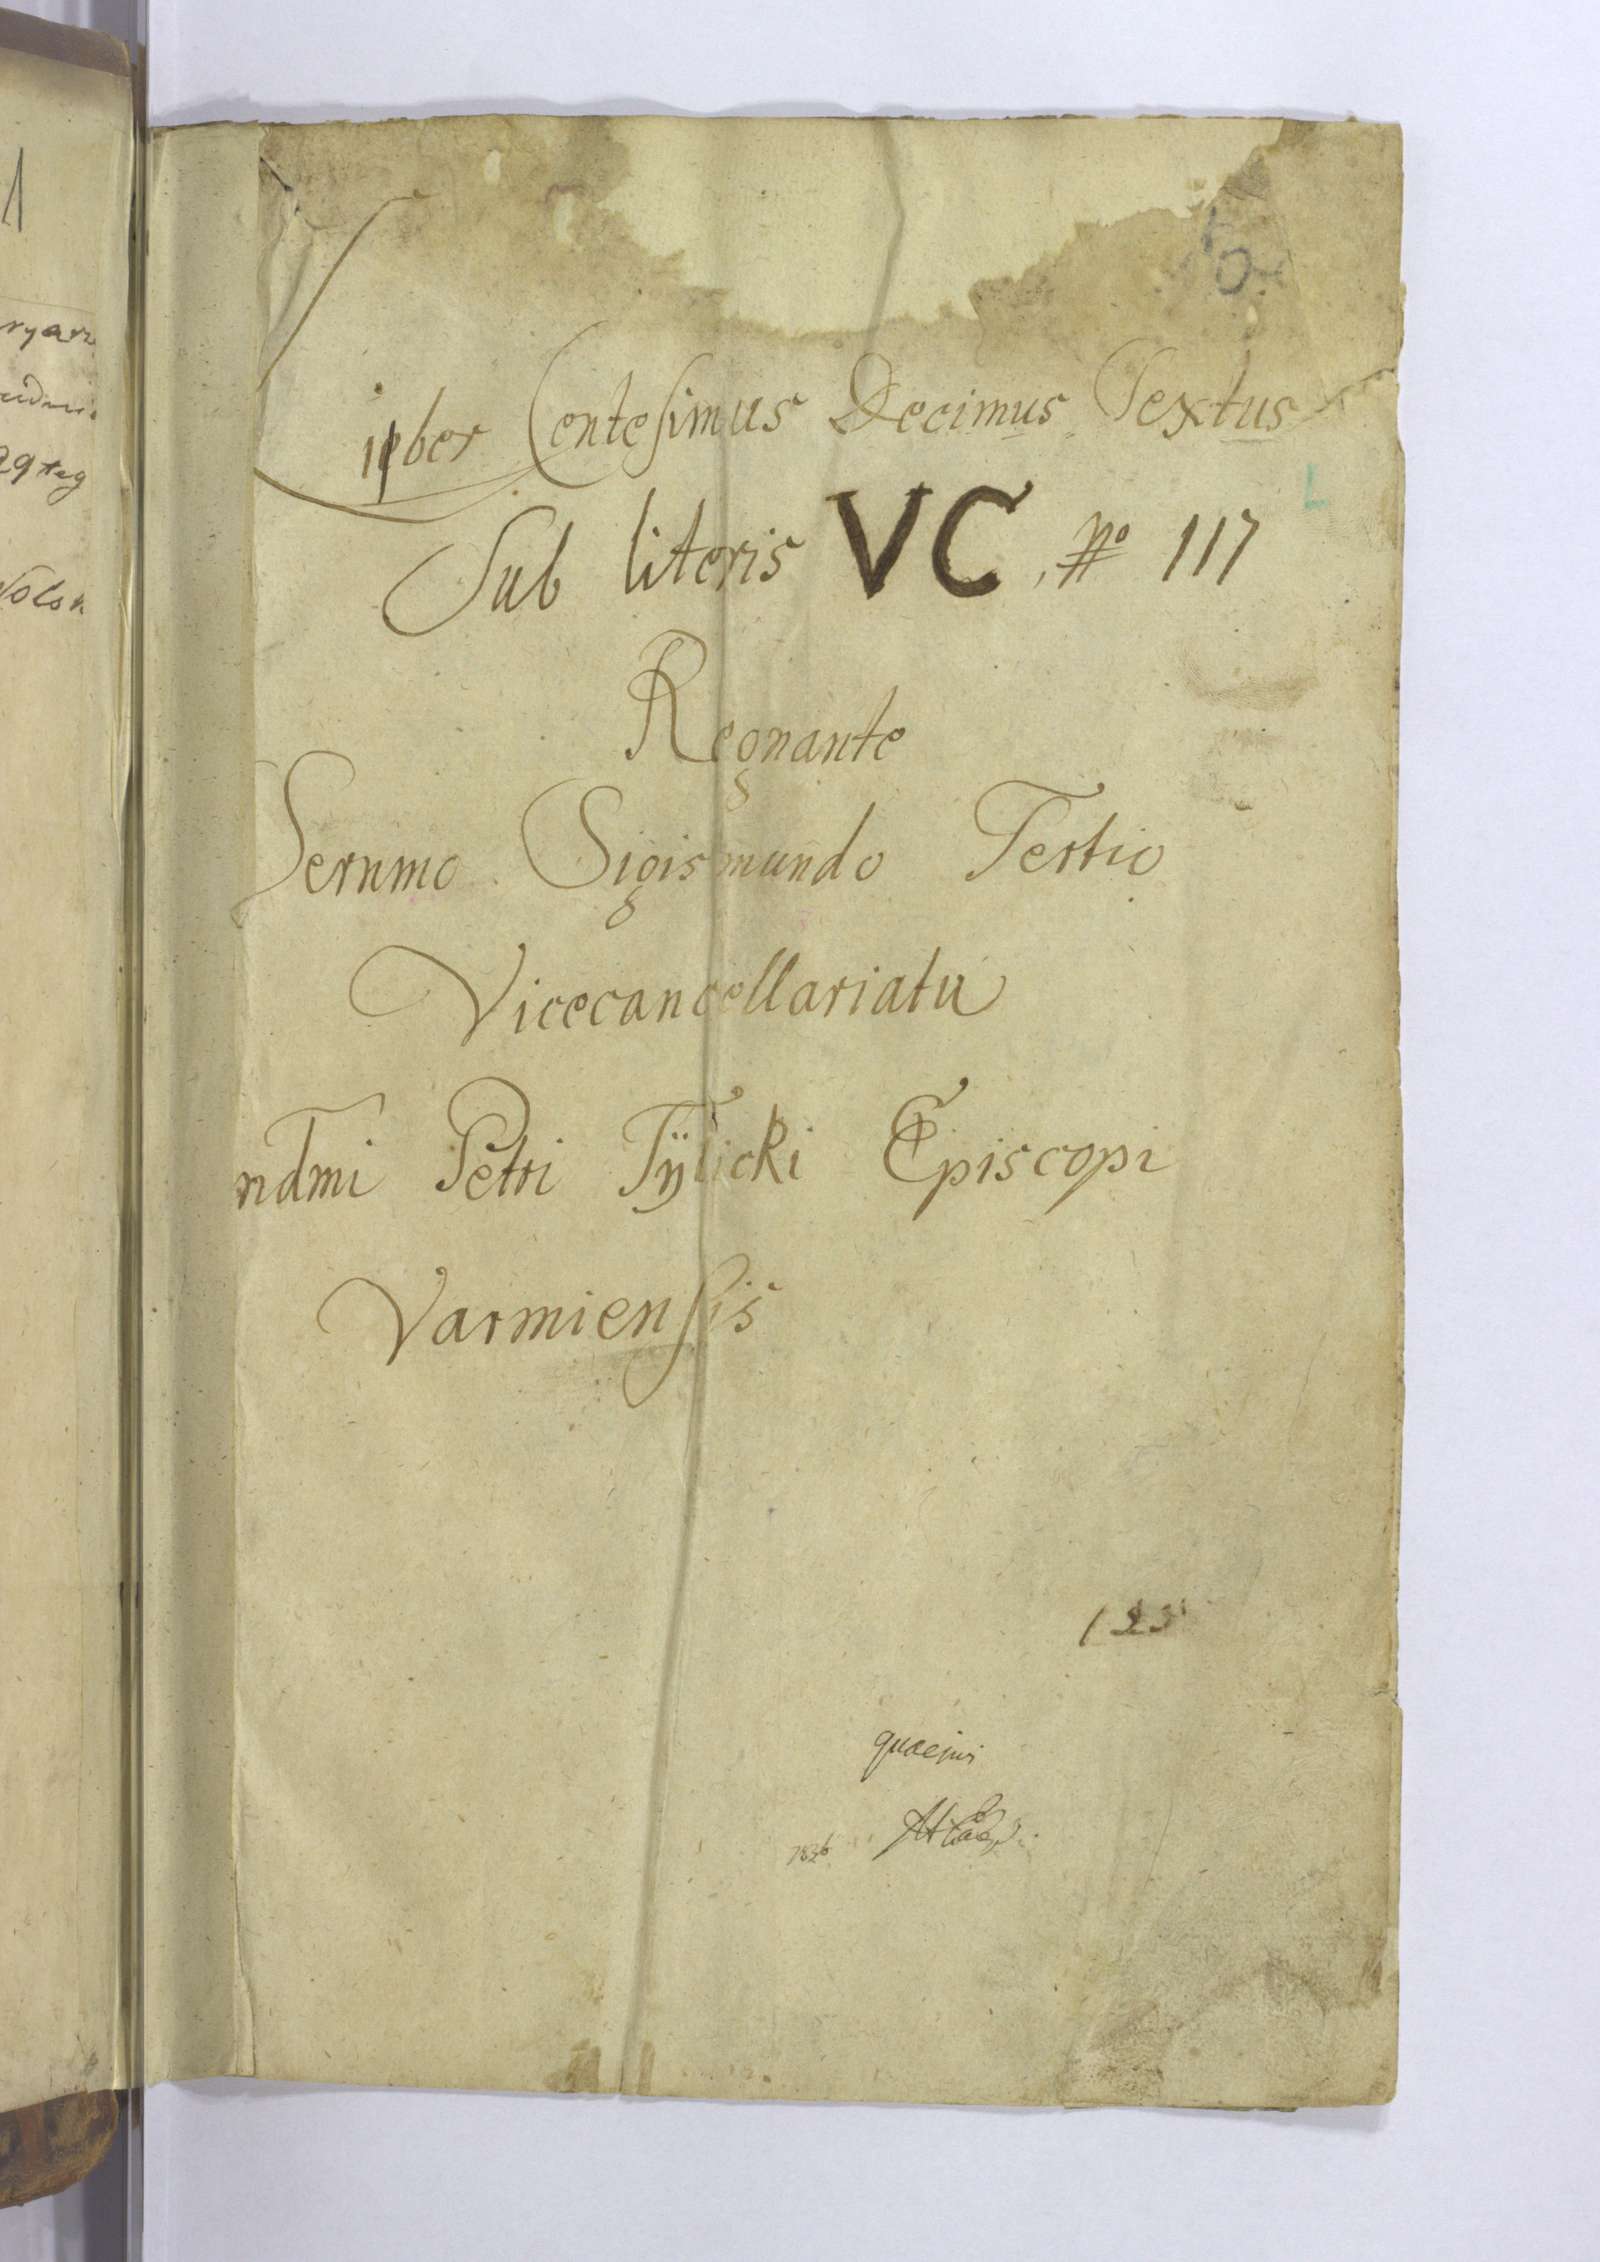 1
Liber Centesimus Decimus Sextus
Sub literis VC, No 117
Regnante
Sernmo Sigismundo Tertio
Vicecancellariatu
ndmi Petri Tÿlicki Episcopi
Varmiensis